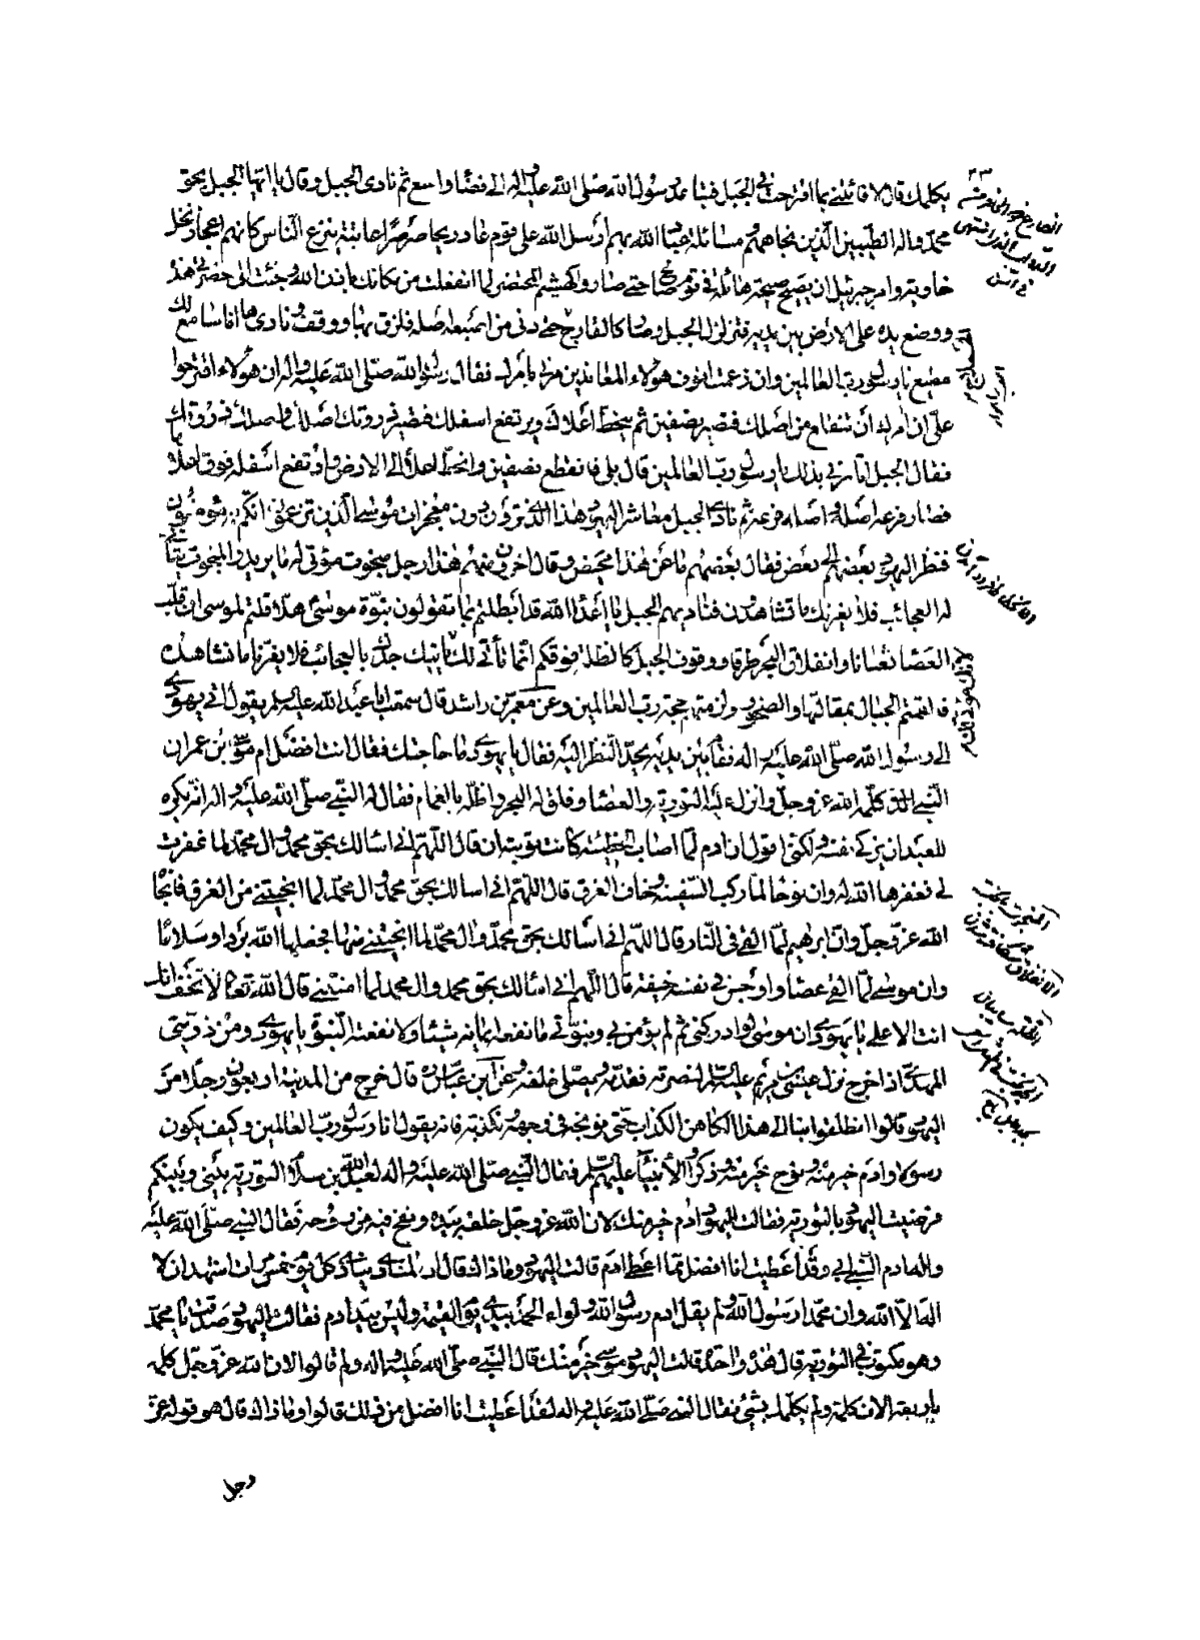 يكلمك قال لا فائتني بما اقترحت في الجبل فتباعد رسول الله صلّى الله عليه واله الى فضاء واسع ثم نادى الجبل وقال يا ايها الجبل بحق
محمد واله الطيبين الذين بجاههم ومسائلة عباد الله بهم ارسل الله على قوم عاد ريحا صرصرا عاتية تنزع الناس كانهم اعجاز نخل
خاوية وامر جبرئيل ان يصيح صيحة هائلة في قوم صالح حتى صاروا كهشيم المحتضر لما انقلعت من مكانك باذن الله وجئت الى حضرتي هذه
ووضع يده على الارض بين يديه فتزلزل الجبل وصار كالقارح حتى دنى من اصبعه اصله فلزق بها ووقف ونادى ها انا سامع لك
مطيع يا رسول رب العالمين وان رغمت انوف هؤلاء المعاندين مرني بامرك فقال رسول الله صلّى الله عليه واله ان هؤلاء اقترحوا
علىّ ان امرك أن تنقلع من اصلك فتصير نصفين ثم ينحط أعلاك ويرتفع اسفلك فتصير ذروتك اصلك واصلك ذروتك
فقال الجبل اتامرني بذلك يا رسول رب العالمين قال بلى فانقطع نصفين وانحط اعلاه الى الارض وارتفع اسفله فوق اعلاه
فصار فرعه اصله واصله فرعه ثم نادى الجبل معاشر اليهود هذا الذي ترون دون معجزات موسى الذين تزعمون انكم به تؤمنون
فنظر اليهود بعضهم الى بعض فقال بعضهم ما عن هذا محيص وقال اخرون منهم هذا رجل مبخوت مؤتى له ما يريد والمبخوت يتأتى
له العجائب فلا يغرنك ما تشاهدون فناداهم الجبل يا اعداء الله قد ابطلتم بما تقولون نبوّة موسى هلا قلتم لموسى ان قلب
العصا ثعبانا وانفلاق البحر طرقا ووقوف الجبل كالظلة فوقكم انما تأتّى لك لانك مبخوت يأتيك جدك بالعجائب فلا يغرنا ما نشاهده
فالقمتهم الجبال بمقالتها الصخور ولزمتهم حجة رب العالمين وعن معمر بن راشد قال سمعت ابا عبد الله عليه السلم يقول اتى يهودي
الى رسول الله صلّى الله عليه واله فقام بين يديه يحدّ النظر اليه فقال يا يهودي ما حاجتك فقال انت افضل ام موسى بن عمران
النبي الذي كلّمه الله عز وجل وانزل عليه التورية والعصا وفلق له البحر واظلّه بالغمام فقال له النبي صلّى الله عليه واله انه يكره
للعبد ان يزكى نفسه ولكنّي اقول ان ادم لما اصاب الخطيئة كانت توبته ان قال اللهم اني اسالك بحق محمد وال محمد لما غفرت
لي فغفرها الله له وان نوحا لما ركب السفينة وخاف الغرق قال اللهم اني اسالك بحق محمد وال محمد لما انجيتني من الغرق فانجاه
الله عز وجل وان ابرهيم لما القي في النار قال اللهم اني أسالك بحق محمد وال محمد لما انجيتني منها فجعلها الله بردا وسلاما
وان موسى لما القى عصاه واوجس في نفسه خيفة قال اللهم اني اسالك بحق محمد وال محمد لما امنتني قال الله تعالى لا تخف انك
انت الاعلى يا يهودي ان موسى لو ادركني ثم لم يؤمن بي وبنبوتي ما نفعه ايمانه شيئا ولا نفعته النبوة يا يهودي ومن ذريتي
المهدي اذا خرج نزل عيسى بن مريم عليه السلم لنصرته فقدّمه ويصلي خلفه وعن ابن عباس قال خرج من المدينة اربعون رجلا من
اليهود قالوا انطلقوا بنا الى هذا الكاهن الكذاب حتى نوبخه في وجهه ونكذبه فانه يقول انا رسول رب العالمين وكيف يكون
رسولا وادم خير منه ونوح خير منه وذكروا الأنبياء عليهم السلم فقال النبي صلّى الله عليه واله لعبد الله بن سلام التورية بيني وبينكم
فرضيت اليهود بالتورية فقالت اليهود ادم خير منك لان الله عز وجل خلقه بيده ونفخ فيه من روحه فقال النبي صلّى الله عليه
واله ادم النبي ابي وقد أعطيت انا افضل مما اعطى ادم قالت اليهود وما ذاك قال ان المنادي ينادي كل يوم خمس مرات اشهد ان لا
اله الا الله وان محمدا رسول الله ولم يقل ادم رسول الله ولواء الحمد بيدي يوم القيمة وليس بيد ادم فقالت اليهود صدقت يا محمد
وهو مكتوب في التورية قال هذه واحدة قالت اليهود موسى خير منك قال النبي صلّى الله عليه واله ولم قالوا لان الله عز وجل كلمه
باربعة الاف كلمة ولم يكلمك بشئ فقال النبي صلّى الله عليه واله لقد أعطيت انا افضل من ذلك قالوا وما ذاك قال هو قوله عز
وجل